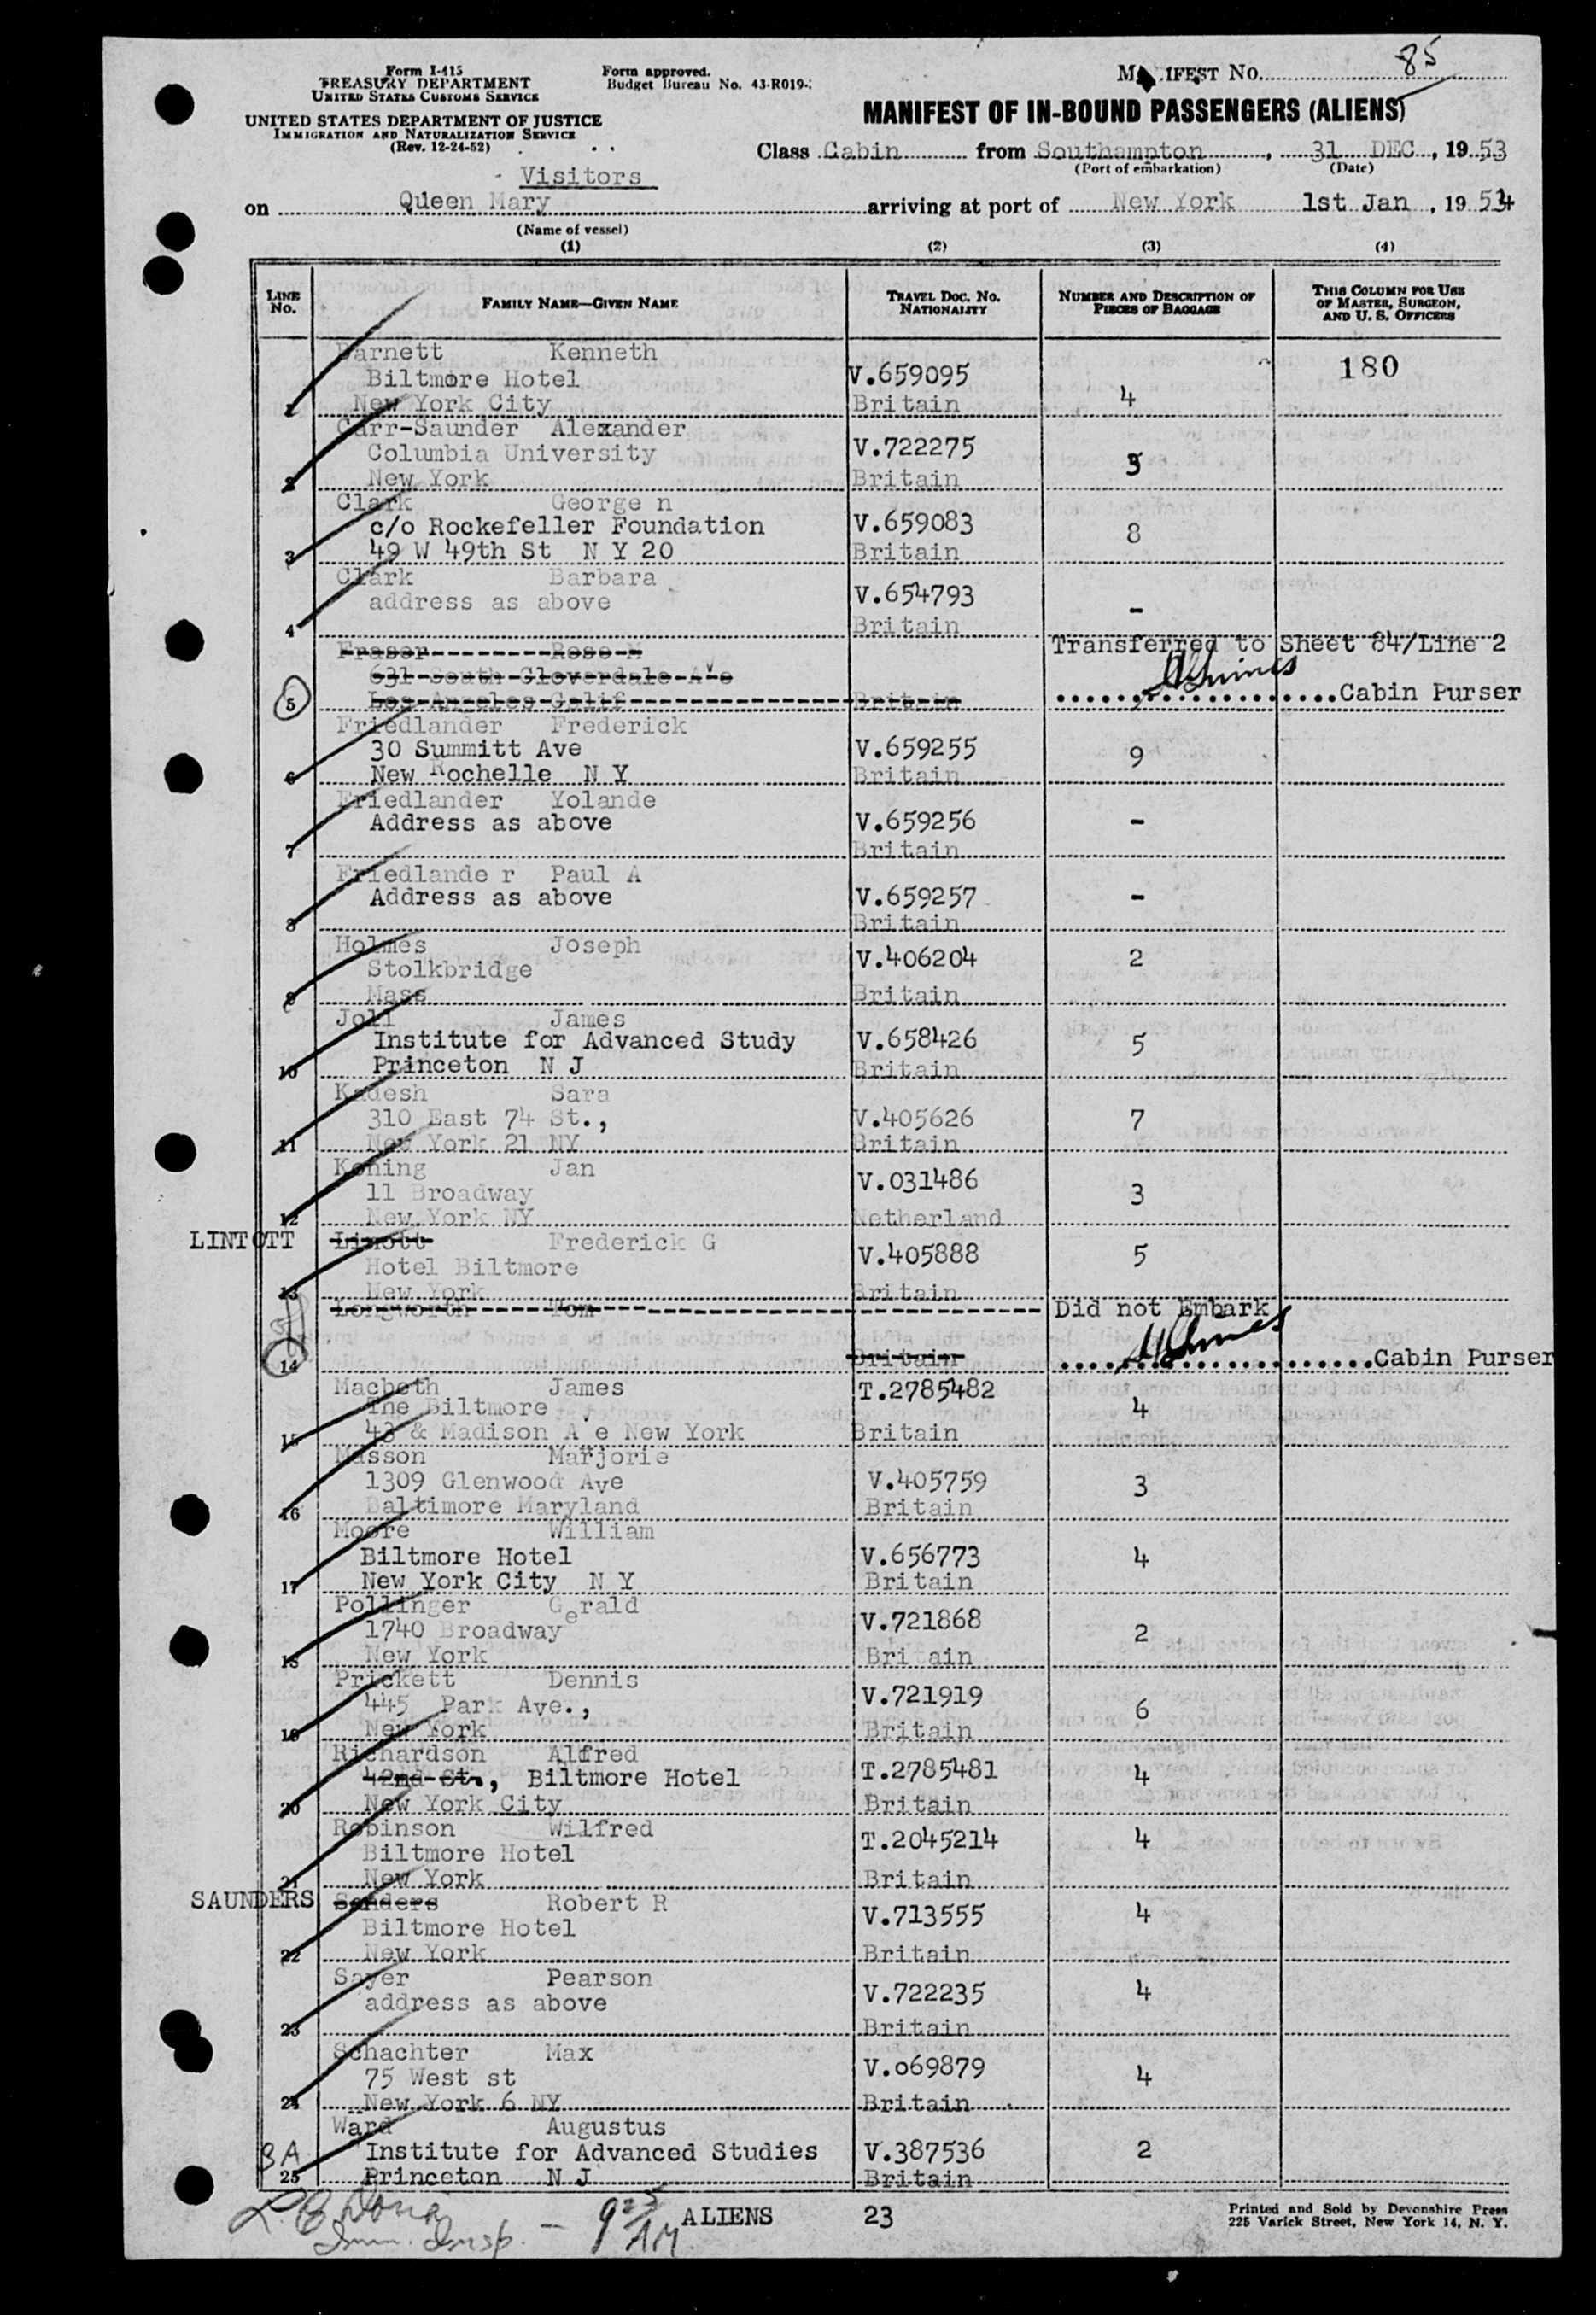 Form I-415
TREASURY DEPARTMENT
UNITED STATES CUSTOMS SERVICE
UNITED STATES DEPARTMENT OF JUSTICE
IMMIGRATION AND NATURALIZATION SERVICE
(Rev. 12-24-52)
Form approved.
Budget Bureau No. 43-R019-
MANIFEST No. 85
MANIFEST OF IN-BOUND PASSENGERS (ALIENS)
Class Cabin from Southampton, 31 DEC, 19 53
(Port of embarkation) (Date)
Visitors
on Queen Mary arriving at port of New York 1st Jan, 19 54
(Name of vessel)
(1) (2) (3) (4)
LINE No. FAMILY NAME—GIVEN NAME TRAVEL DOC. No. NATIONALITY NUMBER AND DESCRIPTION OF PIECES OF BAGGAGE THIS COLUMN FOR USE OF MASTER, SURGEON, AND U. S. OFFICERS
Barnett Kenneth 180
Biltmore Hotel V.659095
1 New York City Britain 4
Carr-Saunder Alexander
Columbia University V.722275
2 New York Britain 5
Clark George n
c/o Rockefeller Foundation V.659083
3 49 W 49th St N Y 20 Britain 8
Clark Barbara
address as above V.654793
4 Britain -
Fraser Rose M Transferred to Sheet 84/Line 2
631 South Cloverdale Ave
5 Los Angeles Calif Britain Cabin Purser
Friedlander Frederick
30 Summitt Ave V.659255 9
6 New Rochelle N Y Britain
Friedlander Yolande
Address as above V.659256 -
7 Britain
Friedlande r Paul A
Address as above V.659257 -
8 Britain
Holmes Joseph
Stolkbridge V.406204 2
9 Mass Britain
Joll James
Institute for Advanced Study V.658426 5
10 Princeton N J Britain
Kadesh Sara
310 East 74 St., V.405626 7
11 New York 21 NY Britain
Koning Jan
11 Broadway V.031486 3
12 New York NY Netherland
LINTOTT Linott Frederick G
Hotel Biltmore V.405888 5
13 New York Britain
Longworth Tom Did not Embark
14 Britain Cabin Purser
Macbeth James T.2785482
The Biltmore 4
15 43 & Madison A e New York Britain
Masson Marjorie
1309 Glenwood Ave V.405759 3
16 Baltimore Maryland Britain
Moore William
Biltmore Hotel V.656773 4
17 New York City N Y Britain
Pollinger Gerald
1740 Broadway V.721868 2
18 New York Bri ain
Prickett Dennis
445 Park Ave., V.721919 6
19 New York Britain
Richardson Alfred
42nd St., Biltmore Hotel T.2785481 4
20 New York City Britain
Robinson Wilfred
Biltmore Hotel T.2045214 4
21 New York Britain
SAUNDERS Sanders Robert R
Biltmore Hotel V.713555 4
22 New York Britain
Sayer Pearson
address as above V.722235 4
23 Britain
Schachter Max
75 West st V.o69879 4
24 New York 6 NY Britain
Ward Augustus
3A Institute for Advanced Studies V.387536 2
25 Princeton N J Britain
ALIENS 23
Imm. Insp. - 9 25 AM
Printed and Sold by Devonshire Press
225 Varick Street, New York 14, N. Y.